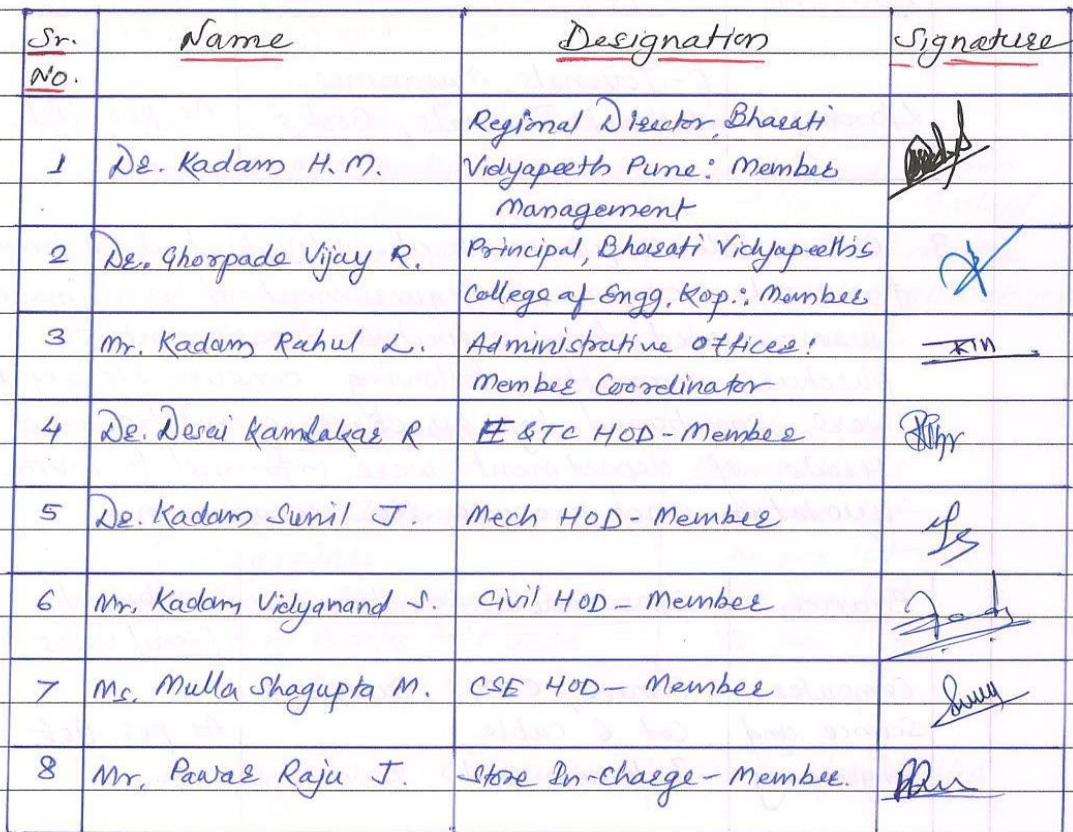 Sr. No. Name Designation Signature
Regional Director, Bharati
1 Dr. Kadam H. M. Vidyapeeth Pune: Member
Management
2 Dr. Ghorpade Vijay R. Principal, Bharati Vidyapeeth's
College of Engg. Kop.: Member
3 Mr. Kadam Rahul L. Administrative Officer:
Member Coordinator
4 Dr. Desai Kamlakar R E &TC HOD - Member
5 Dr. Kadam Sunil J. Mech HOD - Member
6 Mr. Kadam Vidyanand S. Civil HOD - Member
7 Ms. Mulla Shagupta M. CSE HOD - Member
8 Mr. Pawar Raju J. Store In-charge - Member.